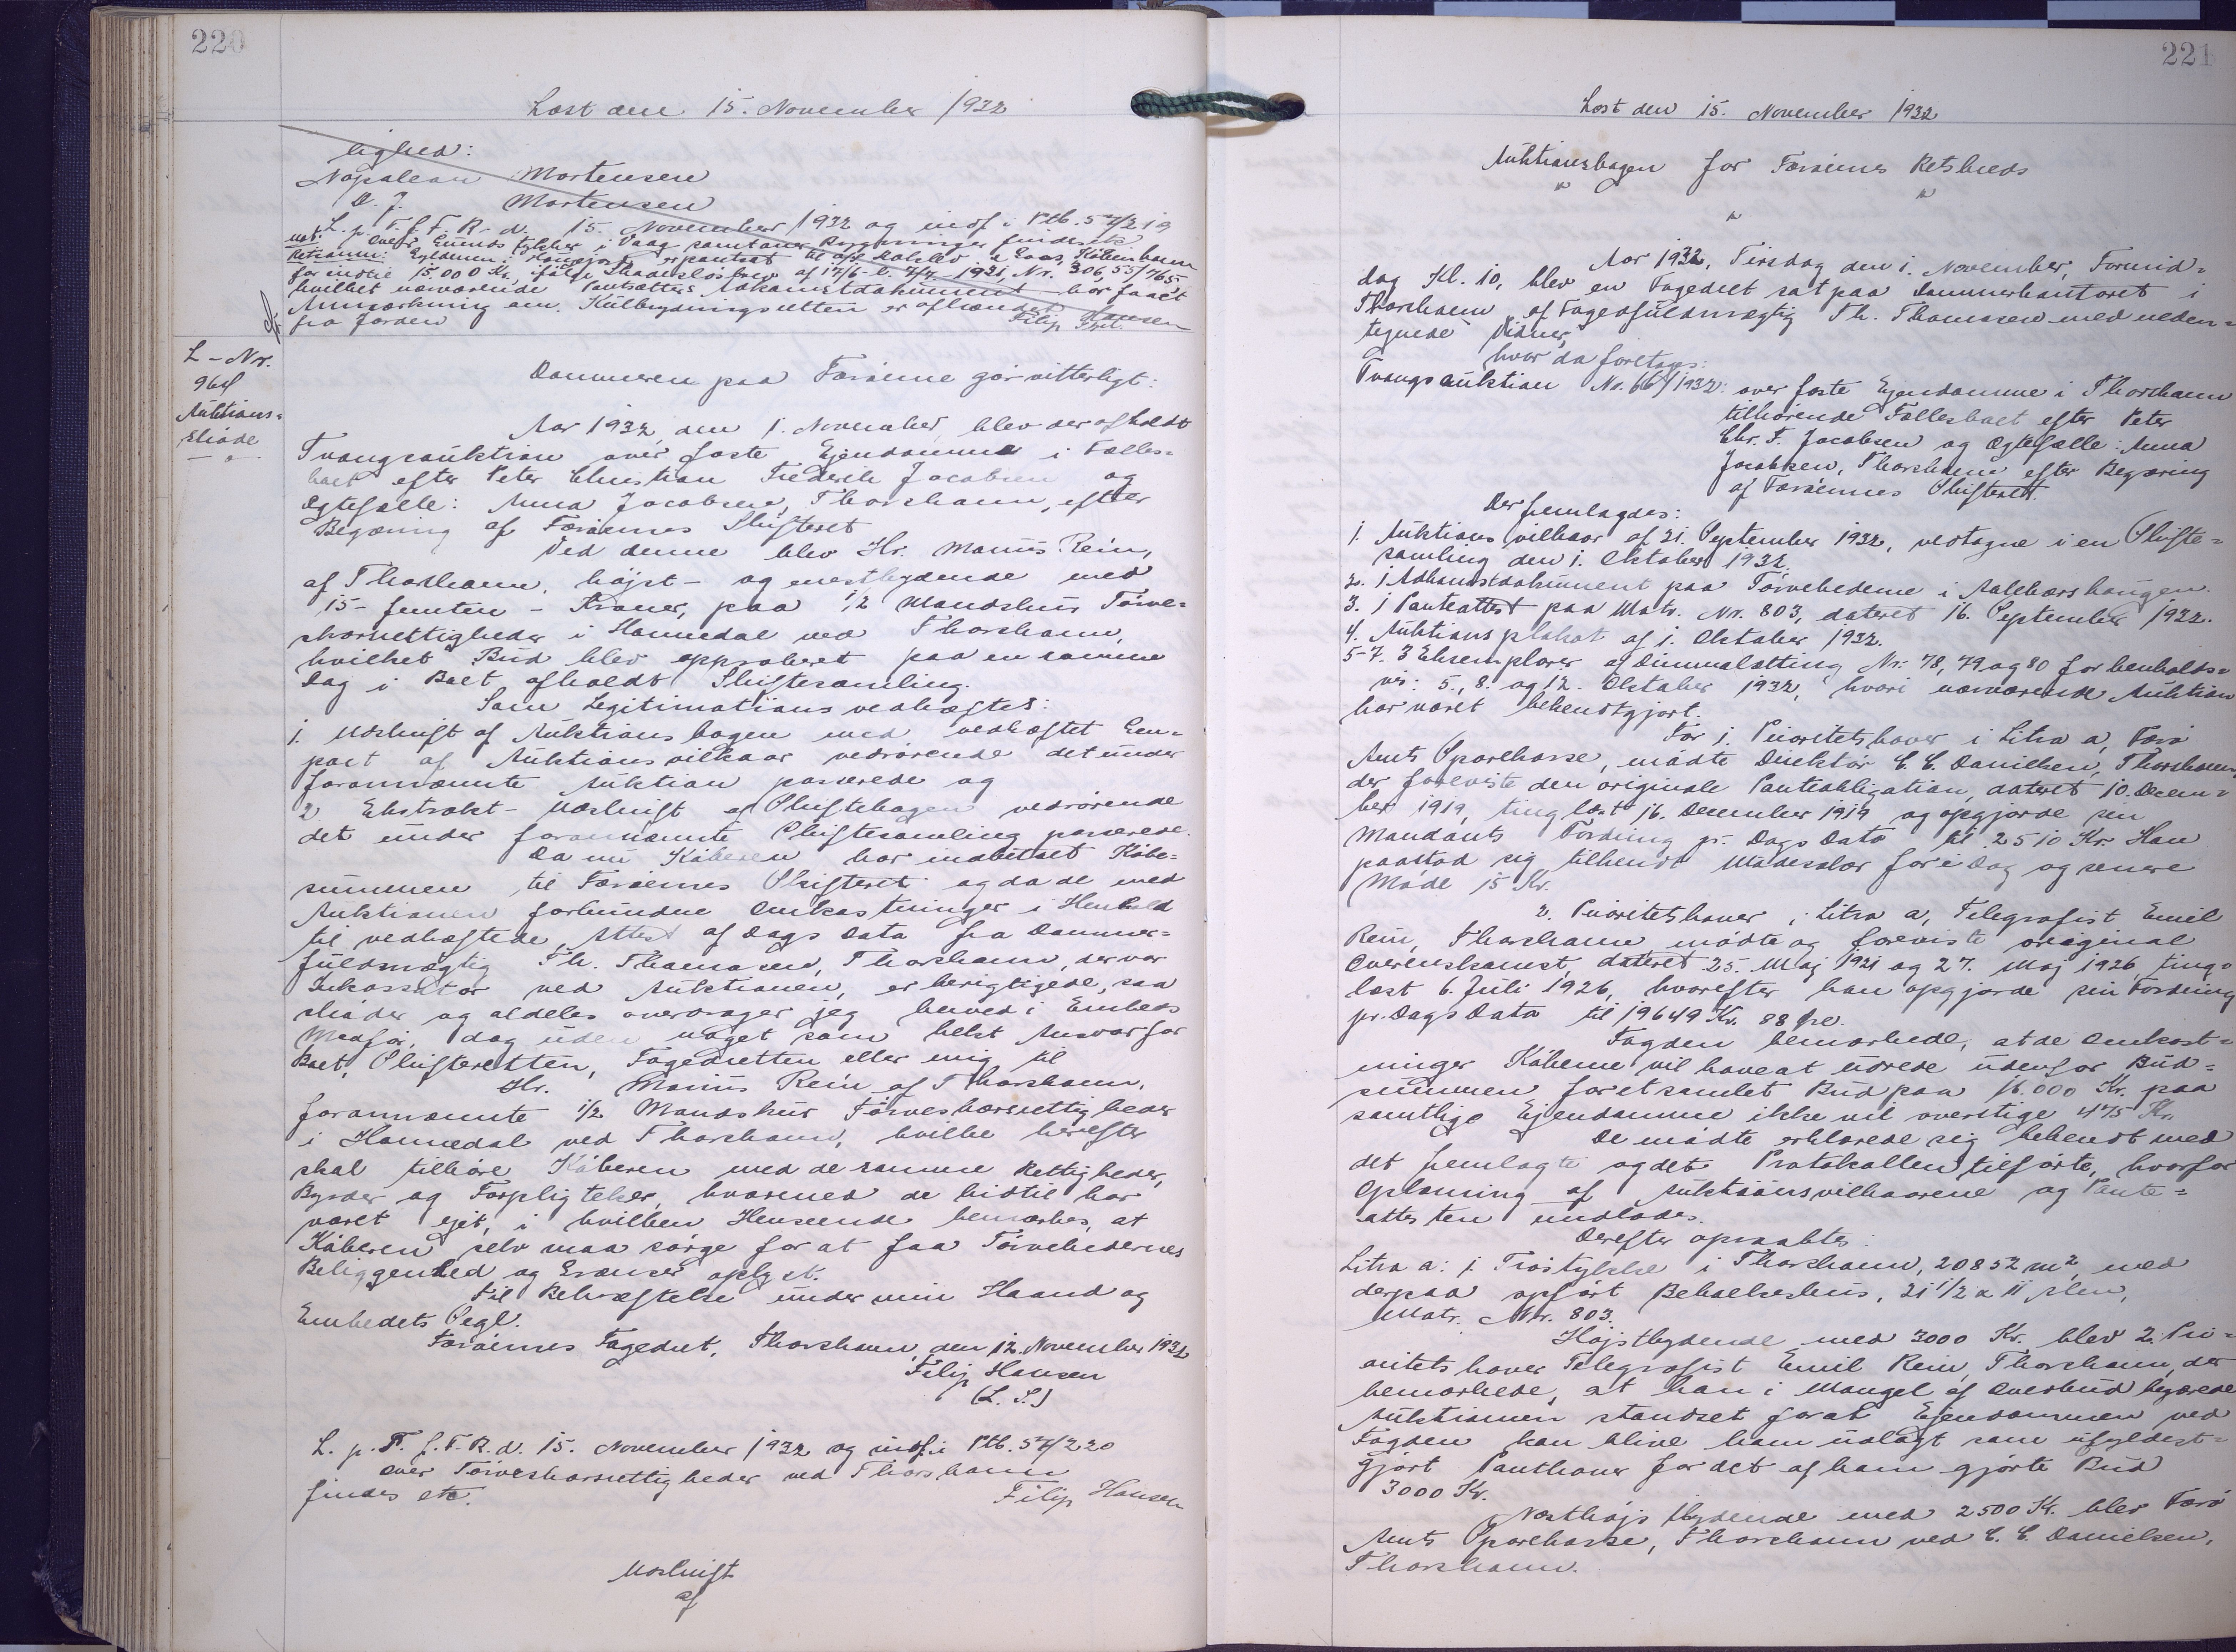 220
Læst den 15. November 1932
lighed:
Napolean Mortensen
D. J. Mortensen
L. p. T. f. F. R. d. 15. November 1932 og indf. i Ptb. 57/219
Not. over Grunds tykker i Vaag samt Bygninger findes etc
Retsanm:
for indtil 15.000 Kr. ifølge Skadesløsbrev af 17/6 - l. 7/7 1921, Nr. 306, 55/765,
hvilket nærværende Pantsætters Adkomstdokument har faaet
Anmærkning om. Kulbrydningsretten er afhændet
fra Jorden Filip Hansen
L-Nr.
964
Auktions=
skøde
Dommeren paa Færøerne gør vitterligt:
Aar 1932, den 1. November, blev der afholdt
Tvangsauktion over faste Ejendomme i Fælles=
boet efter Peter Christian Frederik Jacobsen og
Ægtefælle: Anna Jacobsen, Thorshavn, efter
Begæring af Færøernes Skifteret
Ved denne blev Hr. Marius Rein,
af Thorshavn, højst- og enestbydende med
15- femten - Kroner, paa 1/2 Mandskur Tørve=
skærsrettigheder i Havnedal ved Thorshavn,
hvilket Bud blev approberet paa en samme
Dag i Boet afholdt Skiftesamling.
Som Legitimations vedhæftes:
1. Udskrift af Auktionsbogen med vedhæftet Gen=
part af Auktionsvilkaar vedrørende det under
forannævnte Auktion passerede og
2 Ekstrakt-Udskrift af Skiftebogen vedrørende
det under forannævnte Skiftesamling passerede.
Da nu Køberen har indbetalt Købe=
summen til Færøernes Skifteret og da de med
Auktionen forbundne Omkostninger i Henhold
til vedhæftede Attest af Dags Dato fra Dommer=
fuldmægtig Th. Thomasen, Thorshavn, der var
Inkassator ved Auktionen, er berigtigede, saa
skøder og aldeles overdrager jeg herved i Embeds
Medfør, dog uden noget som helst Ansvar for
Boet, Skifteretten, Fogedretten eller mig til
Hr. Marius Rein af Thorshavn,
forannævnte 1/2 Mandskur Tørveskærsrettigheder
i Havnedal ved Thorshavn, hvilke herefter
skal tilhøre Køberen med de samme Rettigheder,
Byrder og Forpligtelser, hvormed de hidtil har
været ejet, i hvilken Henseende bemærkes, at
Køberen selv maa sørge for at faa Tørvehedernes
Beliggenhed og Grænser oplyst.
Til Bekræftelse under min Haand og
Embedets Segl.
Færøernes Fogedret, Thorshavn, den 12. November 1932
Filip Hansen
(L. S.)
L. p. T. f. F. R. d. 15. November 1932 og indf. i Ptb. 57/220
over Tørveskærsrettigheder ved Thorshavn
findes etc. Filip Hansen
Udskrift
af
221
Læst den 15. November 1932
Auktionsbogen for Færøernes Retskreds
" "
"
Aar 1932, Tirsdag den 1. November, Formid=
dag Kl. 10, blev en Fogedret sat paa Dommerkontoret i
Thorshavn af Fogedfuldmægtig Th. Thomasen med neden=
tegnede Vidner,
hvor da foretoges:
Tvangsauktion No. 66/1932: over faste Ejendomme i Thorshavn
tilhørende Fællesboet efter Peter
Chr. F. Jacobsen og Ægtefælle: Anna
Jacobsen, Thorshavn efter Begæring
af Færøernes Skifteret.
Der fremlagdes:
1. Auktionsvilkaar af 21. September 1932, vedtagne i en Skifte=
samling den 1. Oktober 1932.
2. 1 Adkomstdokument paa Tørvehederne i Aalekærshaugen.
3. 1 Panteattest paa Matr. Nr. 803, dateret 16. September 1932.
4. Auktionsplakat af 1. Oktober 1932.
5-7. 3 Eksemplarer af Dimmalætting Nr: 78, 79 og 80 for henholds=
vis: 5., 8. og 12. Oktober 1932, hvori nærværende Auktion
har været bekendtgjort.
For 1. Prioritetshaver i Litra a, Færø
Amts Sparekasse, mødte Direktør C. C. Danielsen, Thorshavn,
der foreviste den originale Panteobligation, dateret 10. Decem=
ber 1919, tinglæst 16. December 1919 og opgjorde sin
Mandants Fordring pr. Dags Dato til 2510 Kr. Han
paastod sig tilkendt Mødesalær for i Dag og senere
Møde 15 Kr.
2. Prioritetshaver i Litra a, Telegrafist Emil
Rein, Thorshavn mødte og foreviste original
Overenskomst, dateret 25. Maj 1921 og 27. Maj 1926, ting=
læst 6. Juli 1926, hvorefter han opgjorde sin Fordring
pr. Dags Dato til 19649 Kr. 88 Øre.
Fogden bemærkede, at de Omkost=
ninger Køberne vil have at udrede udenfor Bud=
summen for et samlet Bud paa 16.000 Kr. paa
samtlige Ejendomme ikke vil overstige 475 Kr.
De mødte erklærede sig bekendt med
det fremlagte og det Protokollen tilførte, hvorfor
Oplæsning af Auktionsvilkaarene og Pante=
attesten undlodes.
Derefter opraabtes:
Litra a: 1 Trøstykke i Thorshavn, 20852 m², med
derpaa opført Beboelseshus, 21 1/2 x 11 Alen,
Matr. Nr. 803.
Højstbydende med 3000 Kr. blev 2. Pri=
oritetshaver Telegrafist Emil Rein, Thorshavn, der
bemærkede, at han i Mangel af Overbud begærede
Auktionen standset for at Ejendommen ved
Fogden kan blive ham udlagt som ufyldest=
gjort Panthaver for det af ham gjorte Bud
3000 Kr.
Næsthøjstbydende med 2500 Kr. blev Færø
Amts Sparekasse, Thorshavn ved C. C. Danielsen,
Thorshavn.